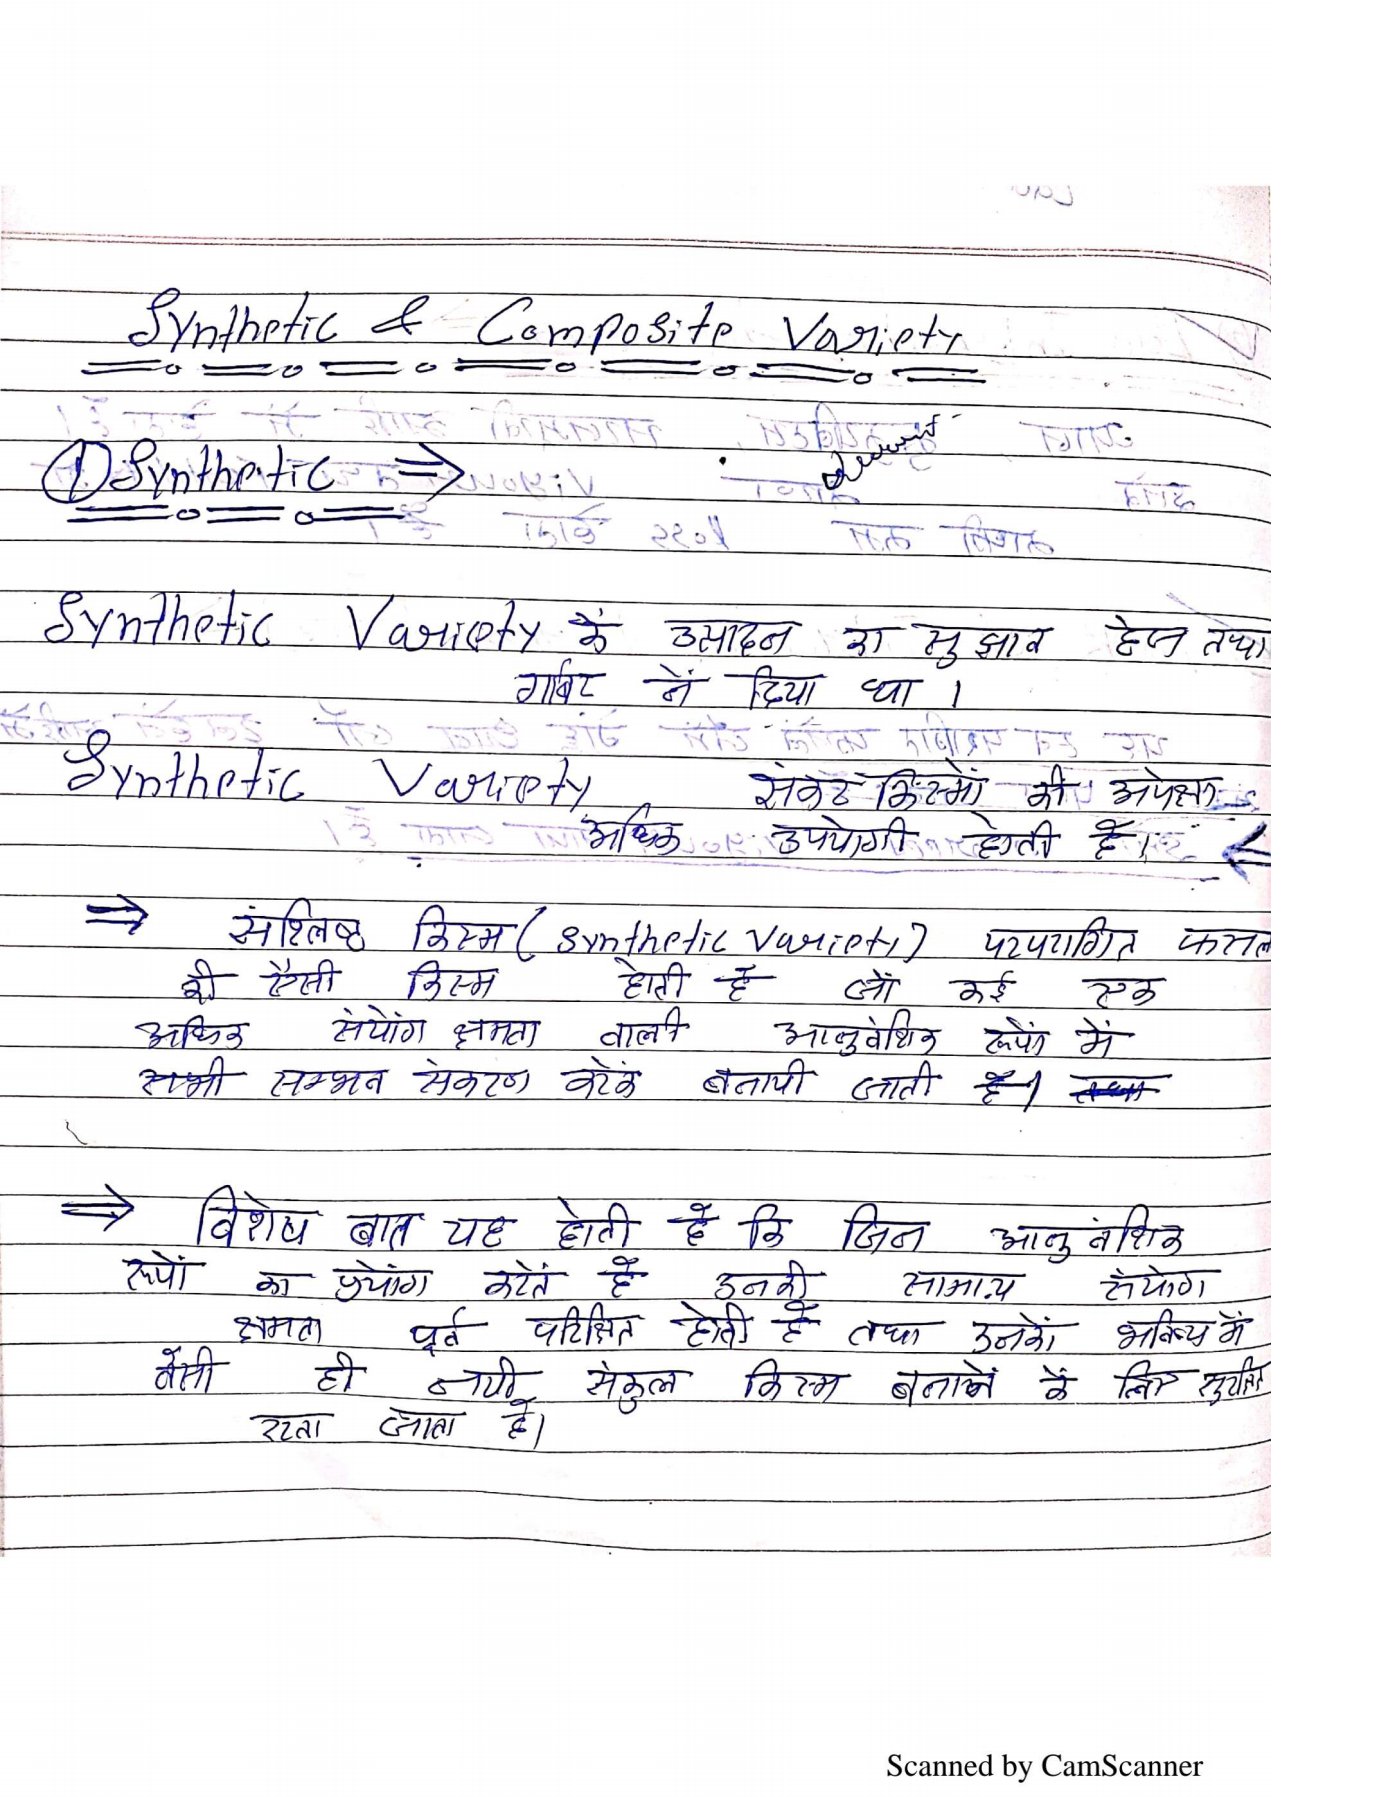 Synthetic & Composite Variety
① Synthetic ⇒
Synthetic Variety कें उत्पादन का सुझाव हेज तथा
गार्बट नें दिया था ।
Synthetic Variety संकर किस्मों की अपेक्षा
अधिक उपयोगी होती हैं।
⇒ संश्लिष्ठ किस्म (Synthetic Variety) परपरागित फसल
की ऐसी किस्म होती हैं जों कई एक
अधिक संयोंग क्षमता वाली आनुवंशिक रूपों में
सभी सम्भव संकरण करकें बनायी जाती हैं। तथा
⇒ विशेष बात यह होती हैं कि जिन आनुवंशिक
रूपों का प्रयोंग करतें हैं उनकी सामान्य संयोग
क्षमता पूर्व परिक्षित होती हैं तथा उनकों भविष्य में
वैंसी ही नयी संकुल किस्म बनानें कें लिए सुरक्षित
रखा जाता हैं।
Scanned by CamScanner